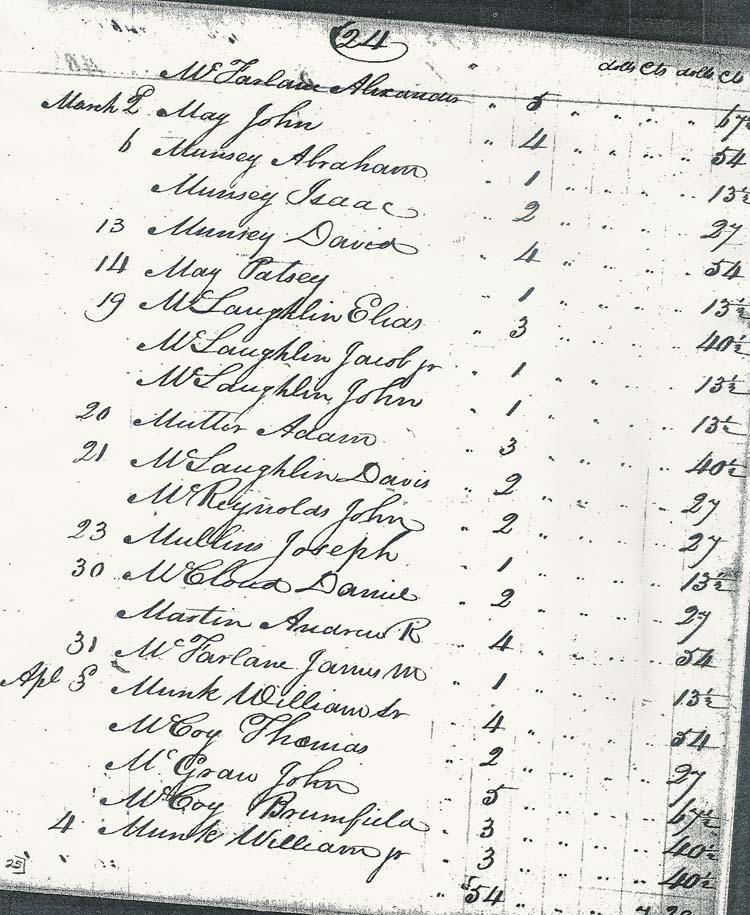 24
dolls Cts dolls Cts
McFarlane Alexander " 5 " " " " 67½
March 2 May John " 4 " " " " 54
6 Munsey Abraham " 1 " " " " 13½
Munsey Isaac " 2 " " " " 27
13 Munsey David " 4 " " " " 54
14 May Patsey " 1 " " " " 13½
19 McLaughlin Elias " 3 " " " " 40½
McLaughlin Jacob jr " 1 " " " " 13½
McLaughlin John " 1 " " " " 13½
20 Mutter Adam " 3 " " " " 40½
21 McLaughlin Davis " 2 " " " " 27
McReynolds John " 2 " " " " 27
23 Mullins Joseph " 1 " " " " 13½
30 McCloud Daniel " 2 " " " " 27
Martin Andrew R " 4 " " " " 54
31 McFarlane James M " 1 " " " " 13½
Apl 3 Munk William Sr " 4 " " " " 54
McCoy Thomas " 2 " " " " 27
McGraw John " 5 " " " " 67½
McCoy Brumfield " 3 " " " " 40½
4 Munk William jr " 3 " " " " 40½
" 54 " " " "
25